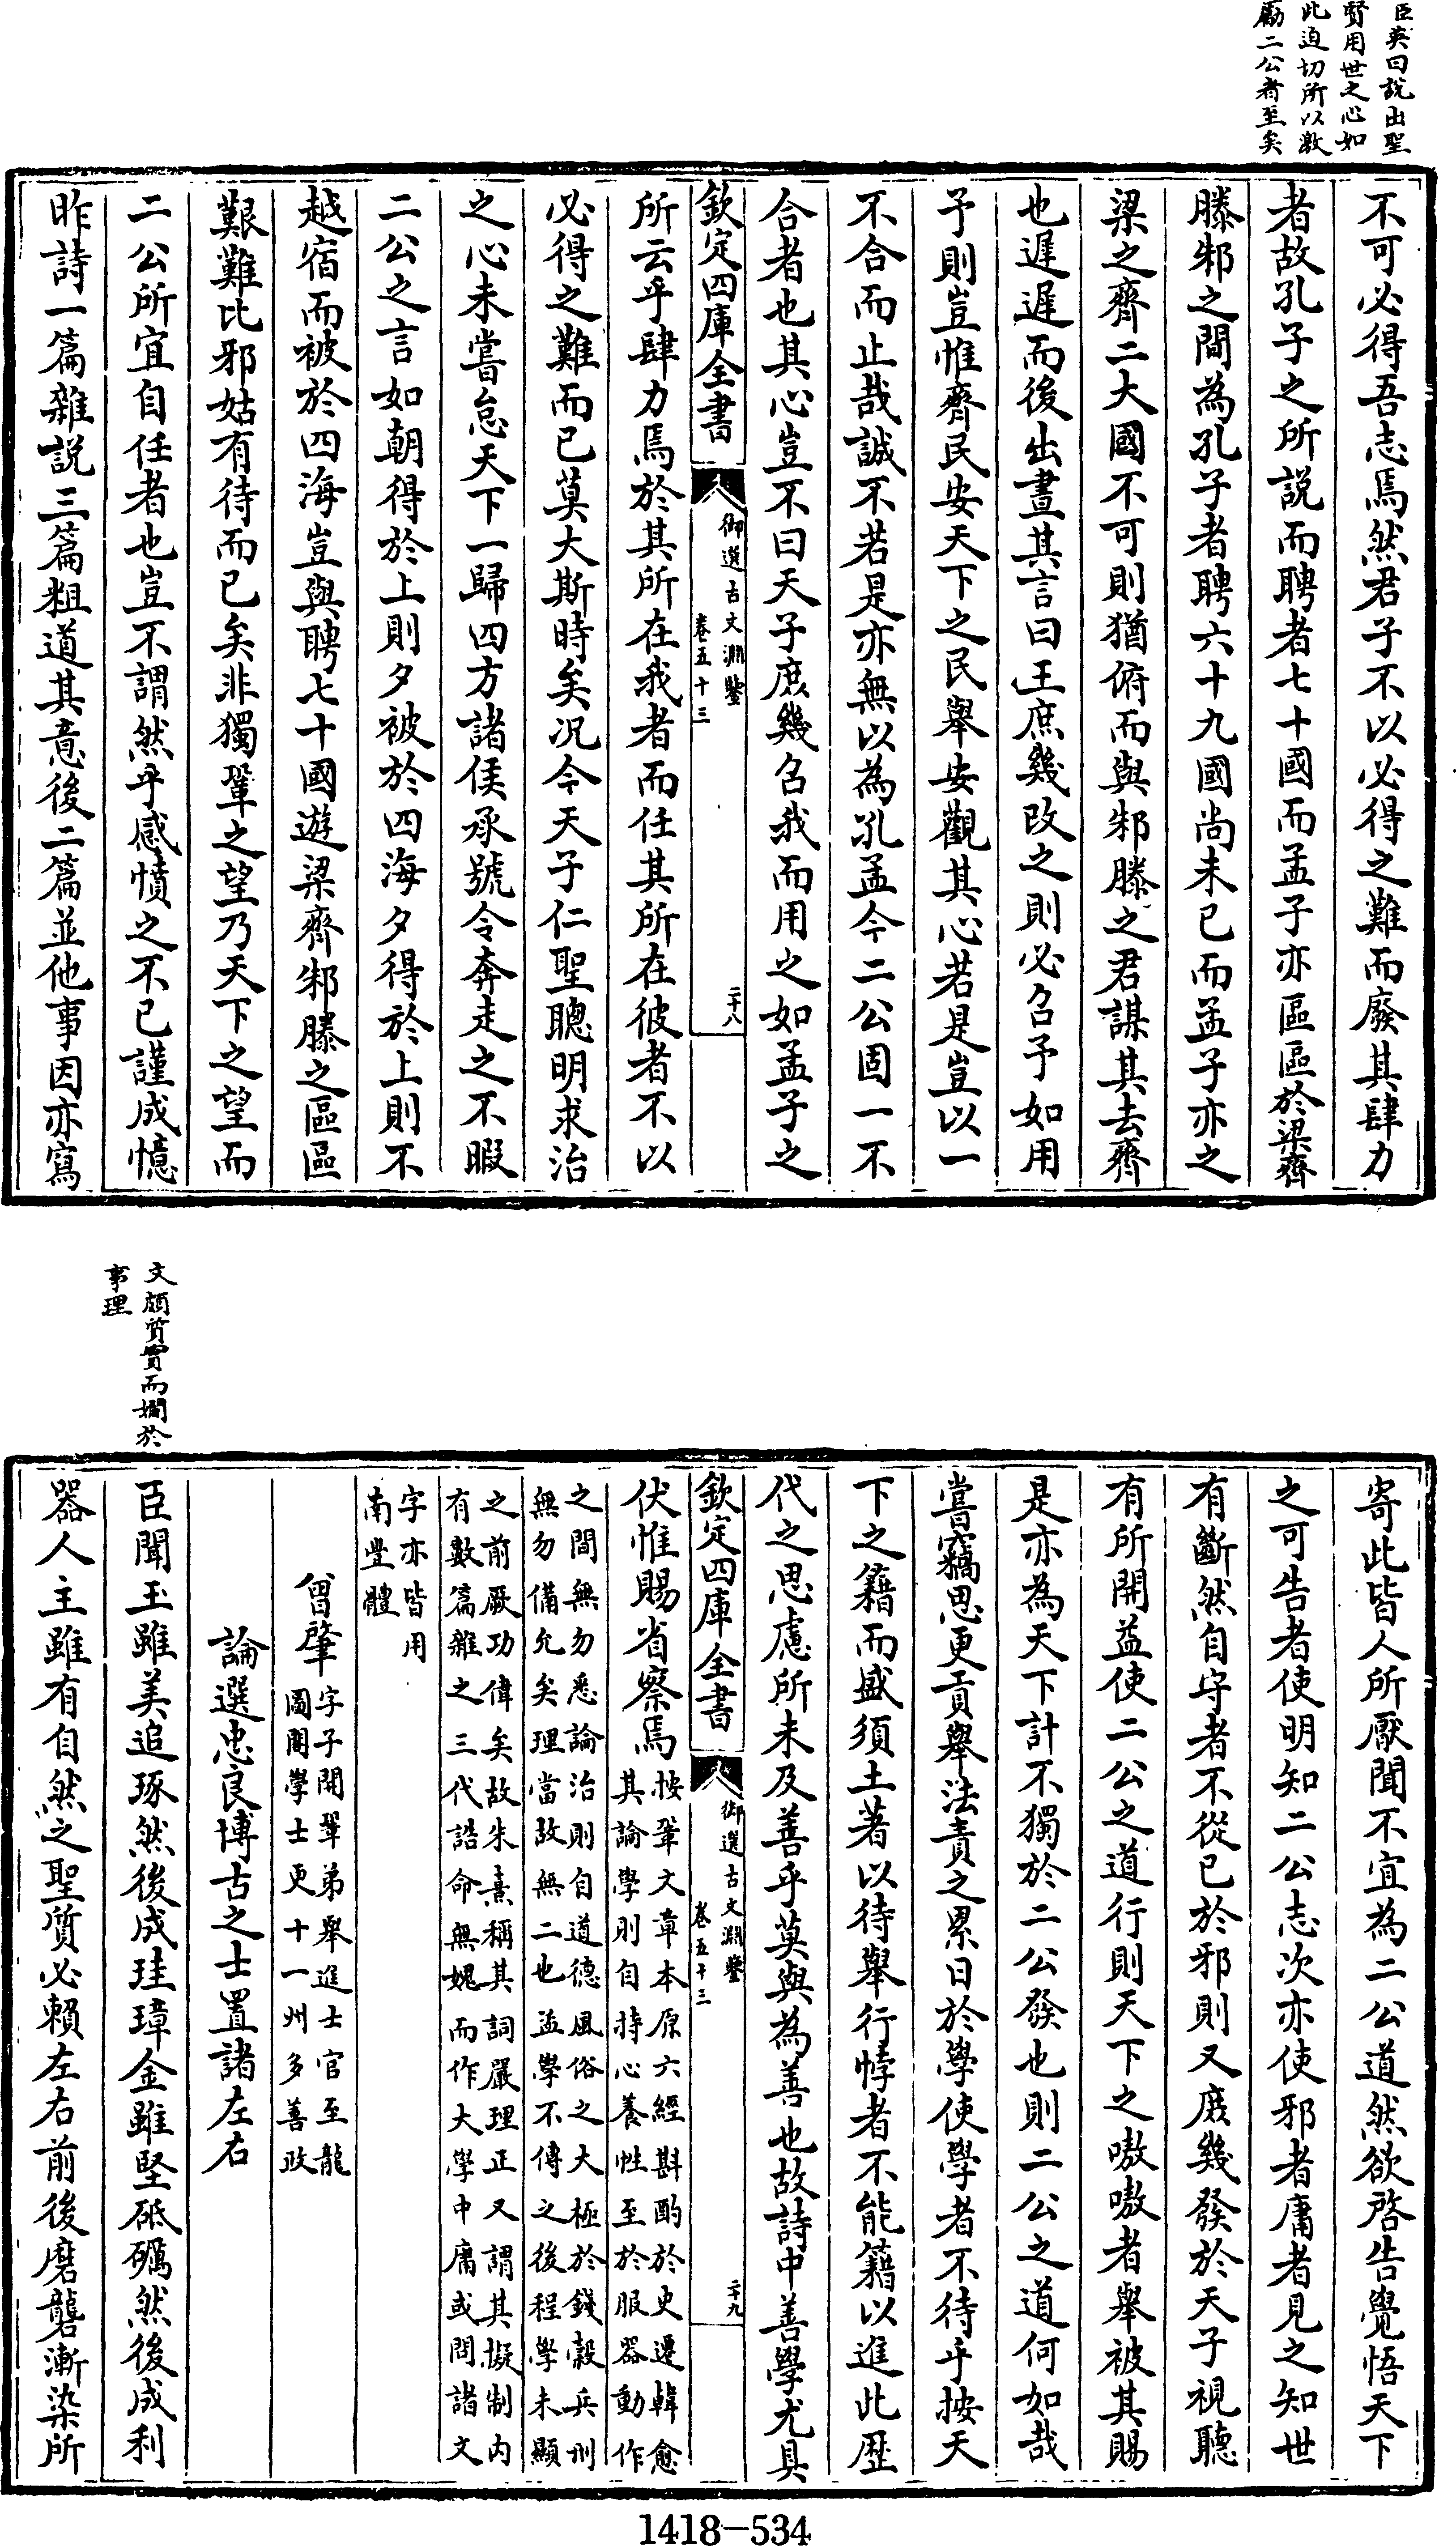 臣英曰說出聖
賢用世之心如
此迫切所以激
勵二公者至矣
不可必得吾志焉然君子不以必得之難而廢其肆力
者故孔子之所說而聘者七十國而孟子亦區區於梁齊
滕邾之間為孔子者聘六十九國尚未已而孟子亦之
梁之齊二大國不可則猶俯而與邾滕之君謀其去齊
也遲遲而後出晝其言曰王庶幾改之則必召予如用
予則豈惟齊民安天下之民舉安觀其心若是豈以一
不合而止哉誠不若是亦無以為孔孟今二公固一不
合者也其心豈不曰天子庶幾召我而用之如孟子之
欽定四庫全書
御選古文淵鑒
卷五十三
二十八
所云乎肆力焉於其所在我者而任其所在彼者不以
必得之難而已莫大斯時矣况今天子仁聖聰明求治
之心未嘗怠天下一歸四方諸侯承號令奔走之不暇
二公之言如朝得於上則夕被於四海夕得於上則不
越宿而被於四海豈與聘七十國遊梁齊邾滕之區區
艱難比邪姑有待而已矣非獨鞏之望乃天下之望而
二公所宜自任者也豈不謂然乎感憤之不已謹成憶
昨詩一篇雜説三篇粗道其意後二篇並他事因亦寫
文頗質實而嫺於
事理
寄此皆人所厭聞不宜為二公道然欲啓告覺悟天下
之可告者使明知二公志次亦使邪者庸者見之知世
有斷然自守者不從已於邪則又庶幾發於天子視聽
有所開益使二公之道行則天下之嗷嗷者舉被其賜
是亦為天下計不獨於二公發也則二公之道何如哉
嘗竊思更貢舉法責之累日於學使學者不待乎按天
下之籍而盛須土著以待舉行悖者不能籍以進此歴
代之思慮所未及善乎莫與為善也故詩中善學尤具
欽定四庫全書
御選古文淵鑒
卷五十三
二十九
伏惟賜省察焉
按鞏文章本原六經斟酌於史遷韓愈
其論學則自持心養性至於服器動作
之間無勿悉論治則自道德風俗之大極於錢穀兵刑
無勿備允矣理當故無二也孟學不傳之後程學未顯
之前厥功偉矣故朱熹稱其詞嚴理正又謂其擬制内
有數篇雜之三代誥命無媿而作大學中庸或問諸文
字亦皆用
南豐體
曾肇
字子開鞏弟舉進士官至龍
圖閣學士更十一州多善政
論選忠良博古之士置諸左右
臣聞玉雖美追琢然後成珪璋金雖堅砥礪然後成利
器人主雖有自然之聖質必賴左右前後磨礱漸染所
1418—534